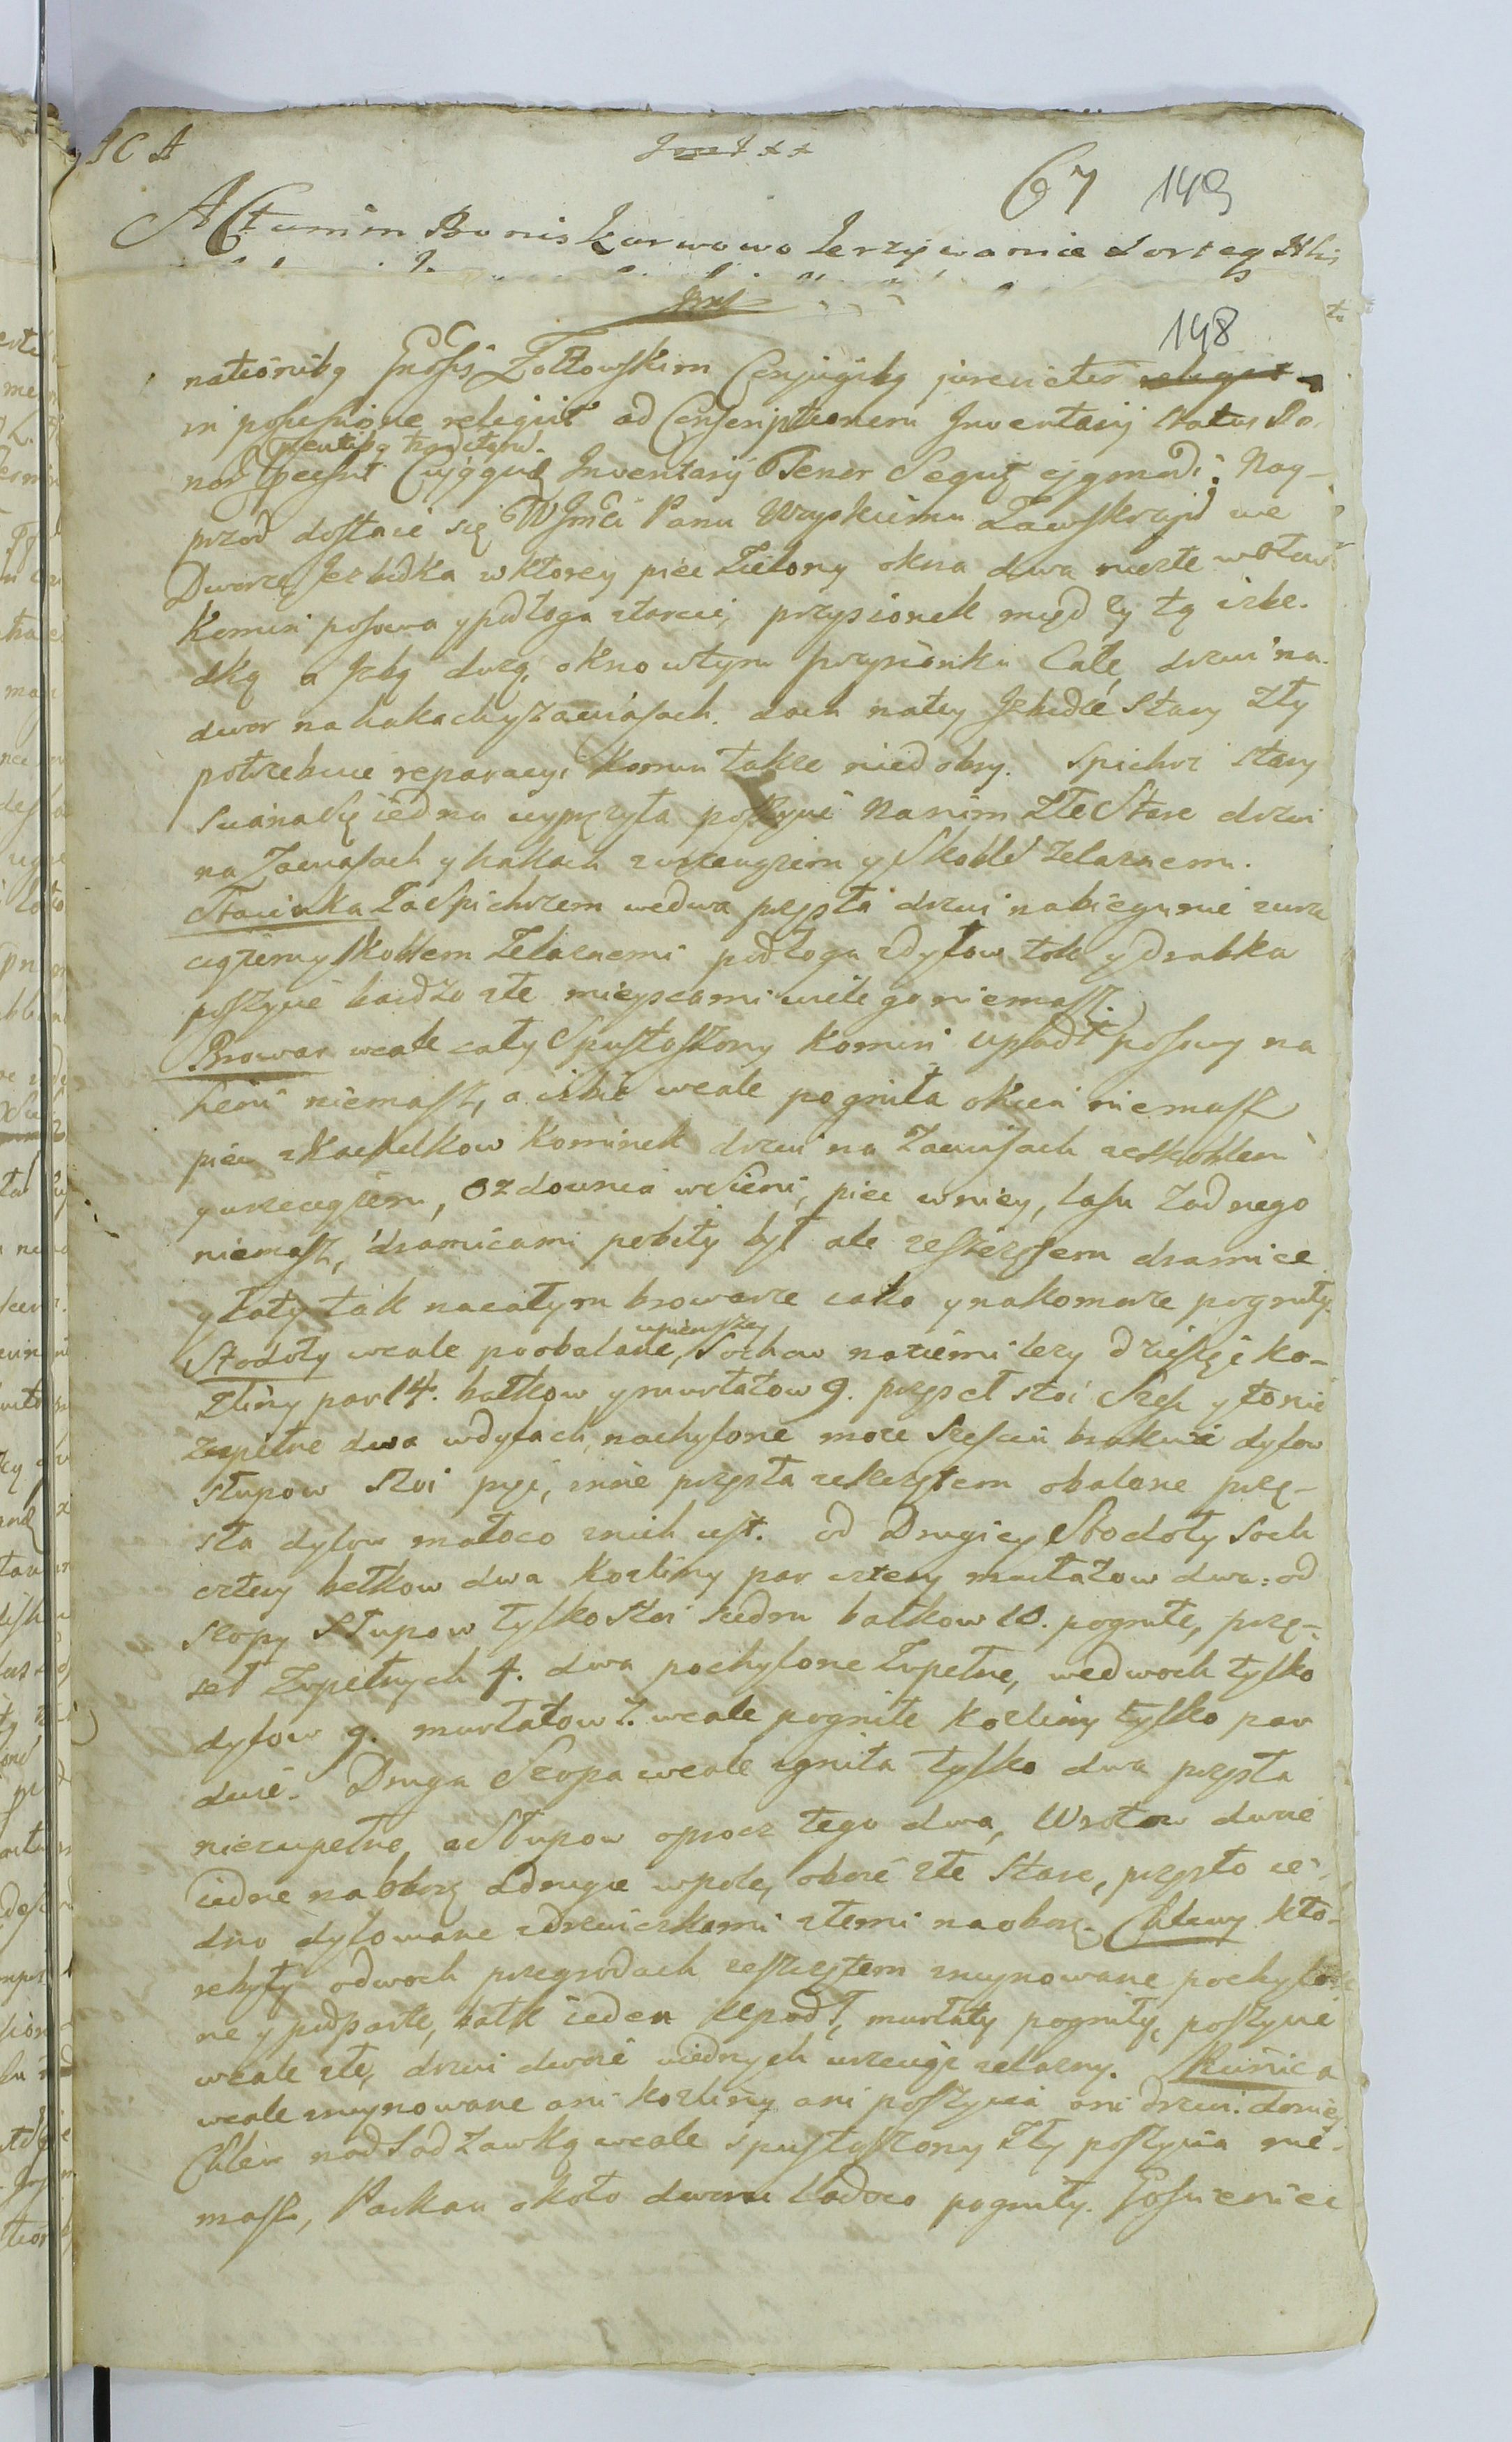 67 149
Actum in Bonis Karwowo Jerzy wanie
148
Żołtowskim Conjugibg
in possessione religuit ad Conscriptionem Inventarij status Bo-
Inventarij Tenor Seqtr ejqmodi: Nay-
przod dostaie się WJmci Panu Wyskiemu Zawskrajd we
Dworze Jezbidka w ktorey piec Zielony okna dwa
Komin posowa y podłoga starcie, przysionek między tą izbe-
dką a Jzbą duzą, okno w tym przysionku Całe, drzwi na
dwor na hakach y zawiasach. dach na tey Jzbidce Stary Zły
potrzebuie reparacyi Komin takze niedobry. Spichrz stary
Sciana Się iedna wypęczyła poszycie Na nim Złe Stare drzwi
na Zawiasach y hakach z wrzeciązem y Skoblem zelaznemi.
Stacienka Za Spichrzem we dwa przęsła drzwi na biegunie z wrze
ciązem y skoblem Zelaznemi podłoga z dylow tok y drabka
poszycie bardzo złe mieyscami wiele go niemasz.
Browar wcale cały Spustoszony Komin upadł posowy na
Sieni niemasz, a izbie wcale pogniła okien niemasz
piec z Kachelkow Kominek drzwi na Zawiasach ze skoblem
y wrzeciązem, Ozdownia w Sieni, piec w niey, lasu Zadnego
niemasz, dranicami pobity był ale ze szczętem dranice
y łaty tak na całym browarze iako y na komorze pogniły
Stodoły wcale poobalane, w pierwszey Sochow na ziemi lezy dziesięć ko-
zliny par 14. balkow y murłatow 9. przęseł stoi Szesc y to nie
Zupełne dwa w dylach, nachylone moze Szesciu brakuie dylow
Słupow Stoi pięć, inne przęsła ze szczętem obalone przę-
sła dylow małoco z nich iest. od Drugiey Stodoły Soch
cztery belkow dwa Kozliny par cztery murłatow dwa: od
Szopy Słupow tylko Stoi siedm balkow 10. pogniłe, przę-
seł Zupełnych 4. dwa pochylone Zupełne, we dwoch tylko
dylow 9. murłatow 7. wcale pogniłe Kozliny tylko par
dwie. Druga Szopa wcale zgniła tylko dwa przęsła
niezupełne, a Słupow oprocz tego dwa, Wrotow dwoie
iedne na oborę a drugie w pole, oboie złe Stare, przęsło ie-
dno dylowane z drzwiczkami złemi na oborę. Chlewy kto-
re były o dwoch przegrodach ze szczętem zruynowane pochylo-
ne y podparte, balk ieden upadł, murłaty pogniły, poszycie
wcale złe, drzwi dwoie u iednych wrzeciąz zelazny. Kuźnica
wcale zruynowane ani kozliny ani poszycia ani drzwi do niey
Chlew nad Sadzawką wcale spustoszony Zły poszycia nie-
masz, Parkan około dworu ladaco pogniły. Gosciniec